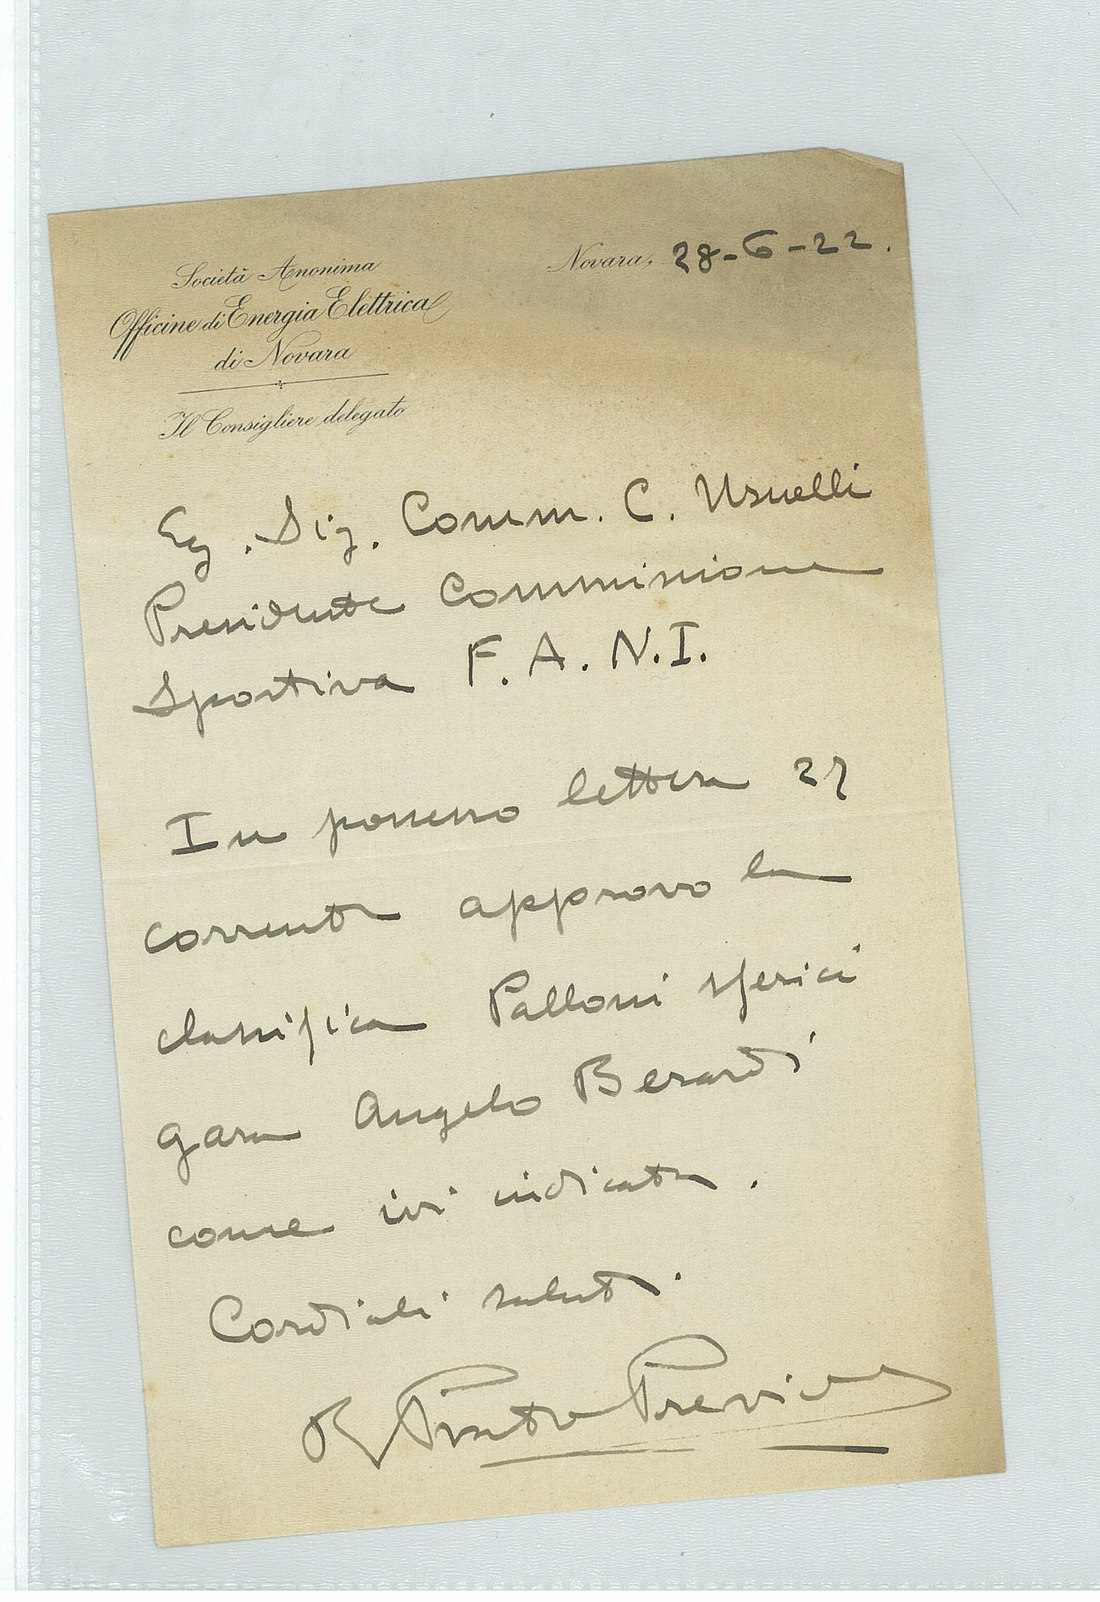 Società Anonima
Officine di Energia Elettrica
di Novara
Il Consigliere delegato
Novara, 28-6-22.
Eg. Sig. Comm. C. Usuelli
Presidente Commissione
Sportiva F. A. N. I.
In possesso lettera 27
corrente approvo la
classifica Palloni sferici
gara Angelo Berardi
come ivi indicata.
Cordiali saluti.
Prato Previde